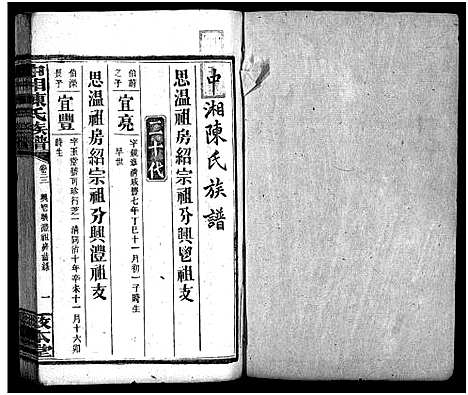 中湘陳氏族譜
思溫祖房紹宗祖分興鬯祖支
二十代
伯蔚之子 宜亮 字 清咸豐七年丁巳十一月初一子時生
早世
思溫祖房紹宗祖分興灃祖支
伯 長子 宜豐 字玉堂號可珍行芝一清同治十年辛未十一月十六卯
時生
中湘陳氏族譜 卷三 一 敦本堂